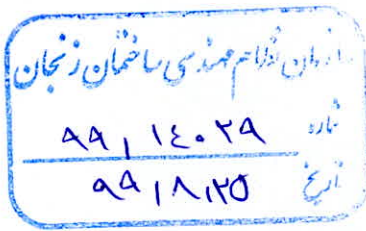 سازمان نظام مهندسی ساختمان زنجان
شماره ۹۹/۱۴۰۲۹
تاریخ ۹۹/۸/۲۵